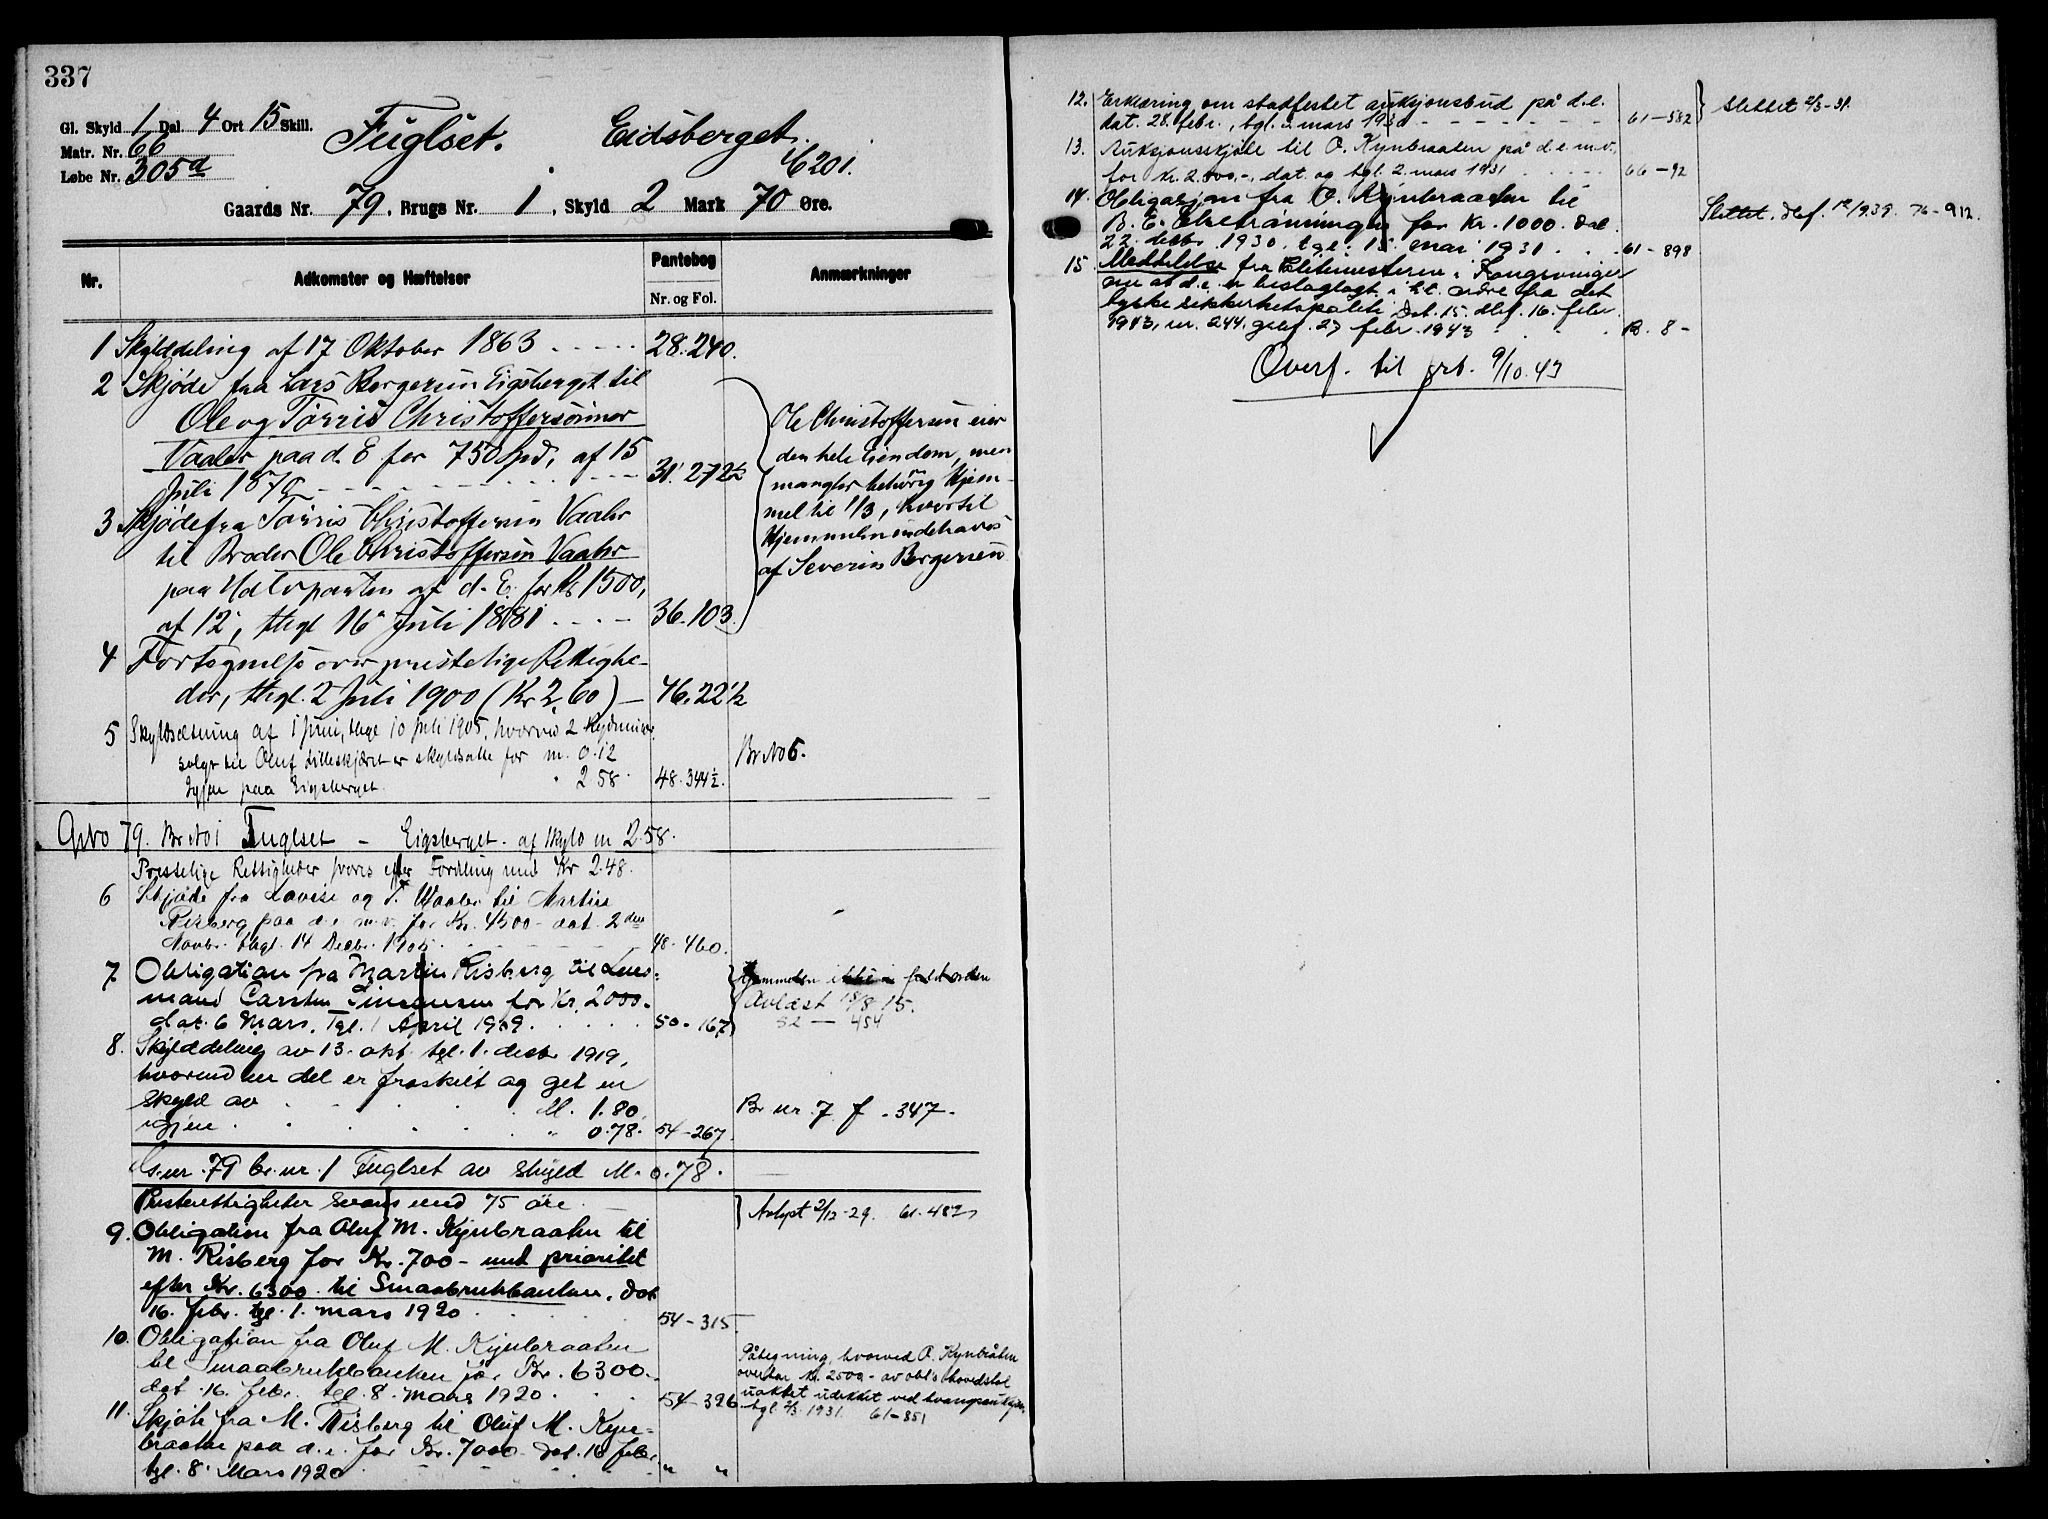 337
Gl. Skyld 1 Dal. 4 Ort 15 Skill.
Matr. Nr. 66
Løbe Nr. 305a
Fuglset. Eidsberget.
6201.
Gaards Nr. 79, Brugs Nr. 1, Skyld 2 Mark 70 Øre.
Nr. Adkomster og Hæftelser Pantebog Anmærkninger
Nr. og Fol.
1 Skylddeling af 17 Oktober 1863 28.240.
2 Skjøde fra Lars Børgersen Eigsberget til
Ole og Tørris Christoffersønner
Vaaler paa d. E for 750 Spd, af 15
Juli 1870 31.272½
3 Skjøde fra Tørris Christoffersen Vaaler
til Broder Ole Christoffersen Vaaler
paa Halvparten af d. E. for Kr 1500,
af 12, thgl 16 Juli 1881 36.103.
Ole Christoffersen eier
den hele Eiendom, men
mangler behørig Hjem-
mel til 1/3, hvortil
Hjemmelen indehaves
af Severin Børgersen
4 Fortegnelse over præstelige Rettighe-
der, thgl. 2 Juli 1900 (Kr 2,60) 46.22½
5 Skyldsætning af 1 juni, thgl 10 juli 1905, hvorved 2 Rydninger
solgt til Oluf Lilleskjæret er skyldsatte for m. 0.12
Igjen paa Eigsberget " 2 58. 48.344½.
Br No 5.
Gno 79. Br No 1 Fuglset - Eigsberget. af skyld m 2.58.
Præstelige Rettigheder svares efter Fordeling med Kr 2.48.
6 Skjøde fra Lovise og T. Waaler til Martin
Risberg paa d.e. m.v. for Kr. 4500 - dat. 2den
Novbr. thgl. 14 Decbr. 1905 48.460.
7. Obligation fra Martin Risberg til Lens-
mand Carsten for Kr. 2000.
dat. 6 Mars. Tgl. 1 April 1909. 50-167
Hjemmelen ikke i orden
Avlæst 18/8 15.
52 - 454
8. Skylddeling av 13. okt. tgl. 1. decbr. 1919,
hvorved en del er fraskilt og git en
skyld av M. 1.80.
igjen " 0.78. 54-267.
Br nr. 7 f. 347.
G.nr. 79 br.nr. 1 Fuglset av skyld M. 0.78.
Presterettigheter svares med 75 øre.
9. Obligation fra Oluf M. Kynbraaten til
M. Risberg for Kr. 700 - med prioritet
efter Kr. 6300 til Smaabrukbanken. Dat
16. febr. tgl. 1. mars 1920 54-315.
Avlyst 2/12-29. 61-482
10. Obligation fra Oluf M. Kynbraaten
til Smaabrukbanken for Kr. 6300.
dat. 16. febr. tgl. 8. mars 1920 54-326
Påtegning, hvorved O. Kynbråten
overtar kr. 2500 - av obl.s hovedstol
uaktet udekket ved tvangsauksjon,
tgl. 2/3 1931 61-851
11. Skjøte fra M. Risberg til Oluf M. Kyn-
braaten paa d.e. for Kr. 7000 dat. 16 febr.
tgl. 8. Mars 1920 " "
12. Erklæring om stadfestet auksjonsbud på d.e.
dat. 28. febr., tgl. 3. mars 1930 61-582
Slettet 2/3-31.
13. Auksjonsskjøte til O. Kynbraaten på d.e. m.v.
for kr. 2.500,-, dat. og tgl. 2. mars 1931 66-92
14. Obligasjon fra O. Kynbraaten til
B. E. for Kr. 1000. Dat.
22. decbr. 1930, tgl. 15. mai 1931 61-898
Slettet. dbf. 12/9.39. 76-912.
15. Meddelelse fra i Kongsvinger
om at d.e. er beslaglagt i h.t. ordre fra det
tyske sikkerhetspoliti. Dat. 15. dbf. 16. febr.
1943, nr. 244. gjenf. 27 febr. 1943 B. 8-
Overf. til grb. 9/10.43